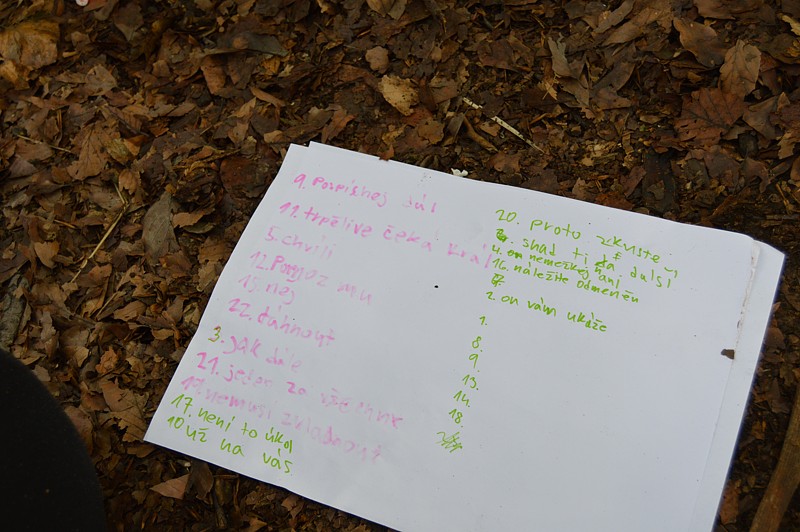 9. Pospíchej dál
11. trpělivě čeká král
5. chvíli
12. Pomoz mu
15. nej
22. dúhnout
3. jak dále
21. jeden za všechny
19. nemusí zvládnout
17. není to úkol
10 už na vás
20. proto zkuste
snad ti dá další
4. on nemeškej ani
16. náležitě odměněn
2. on vám ukáže
1.
8.
9.
13.
14.
18.